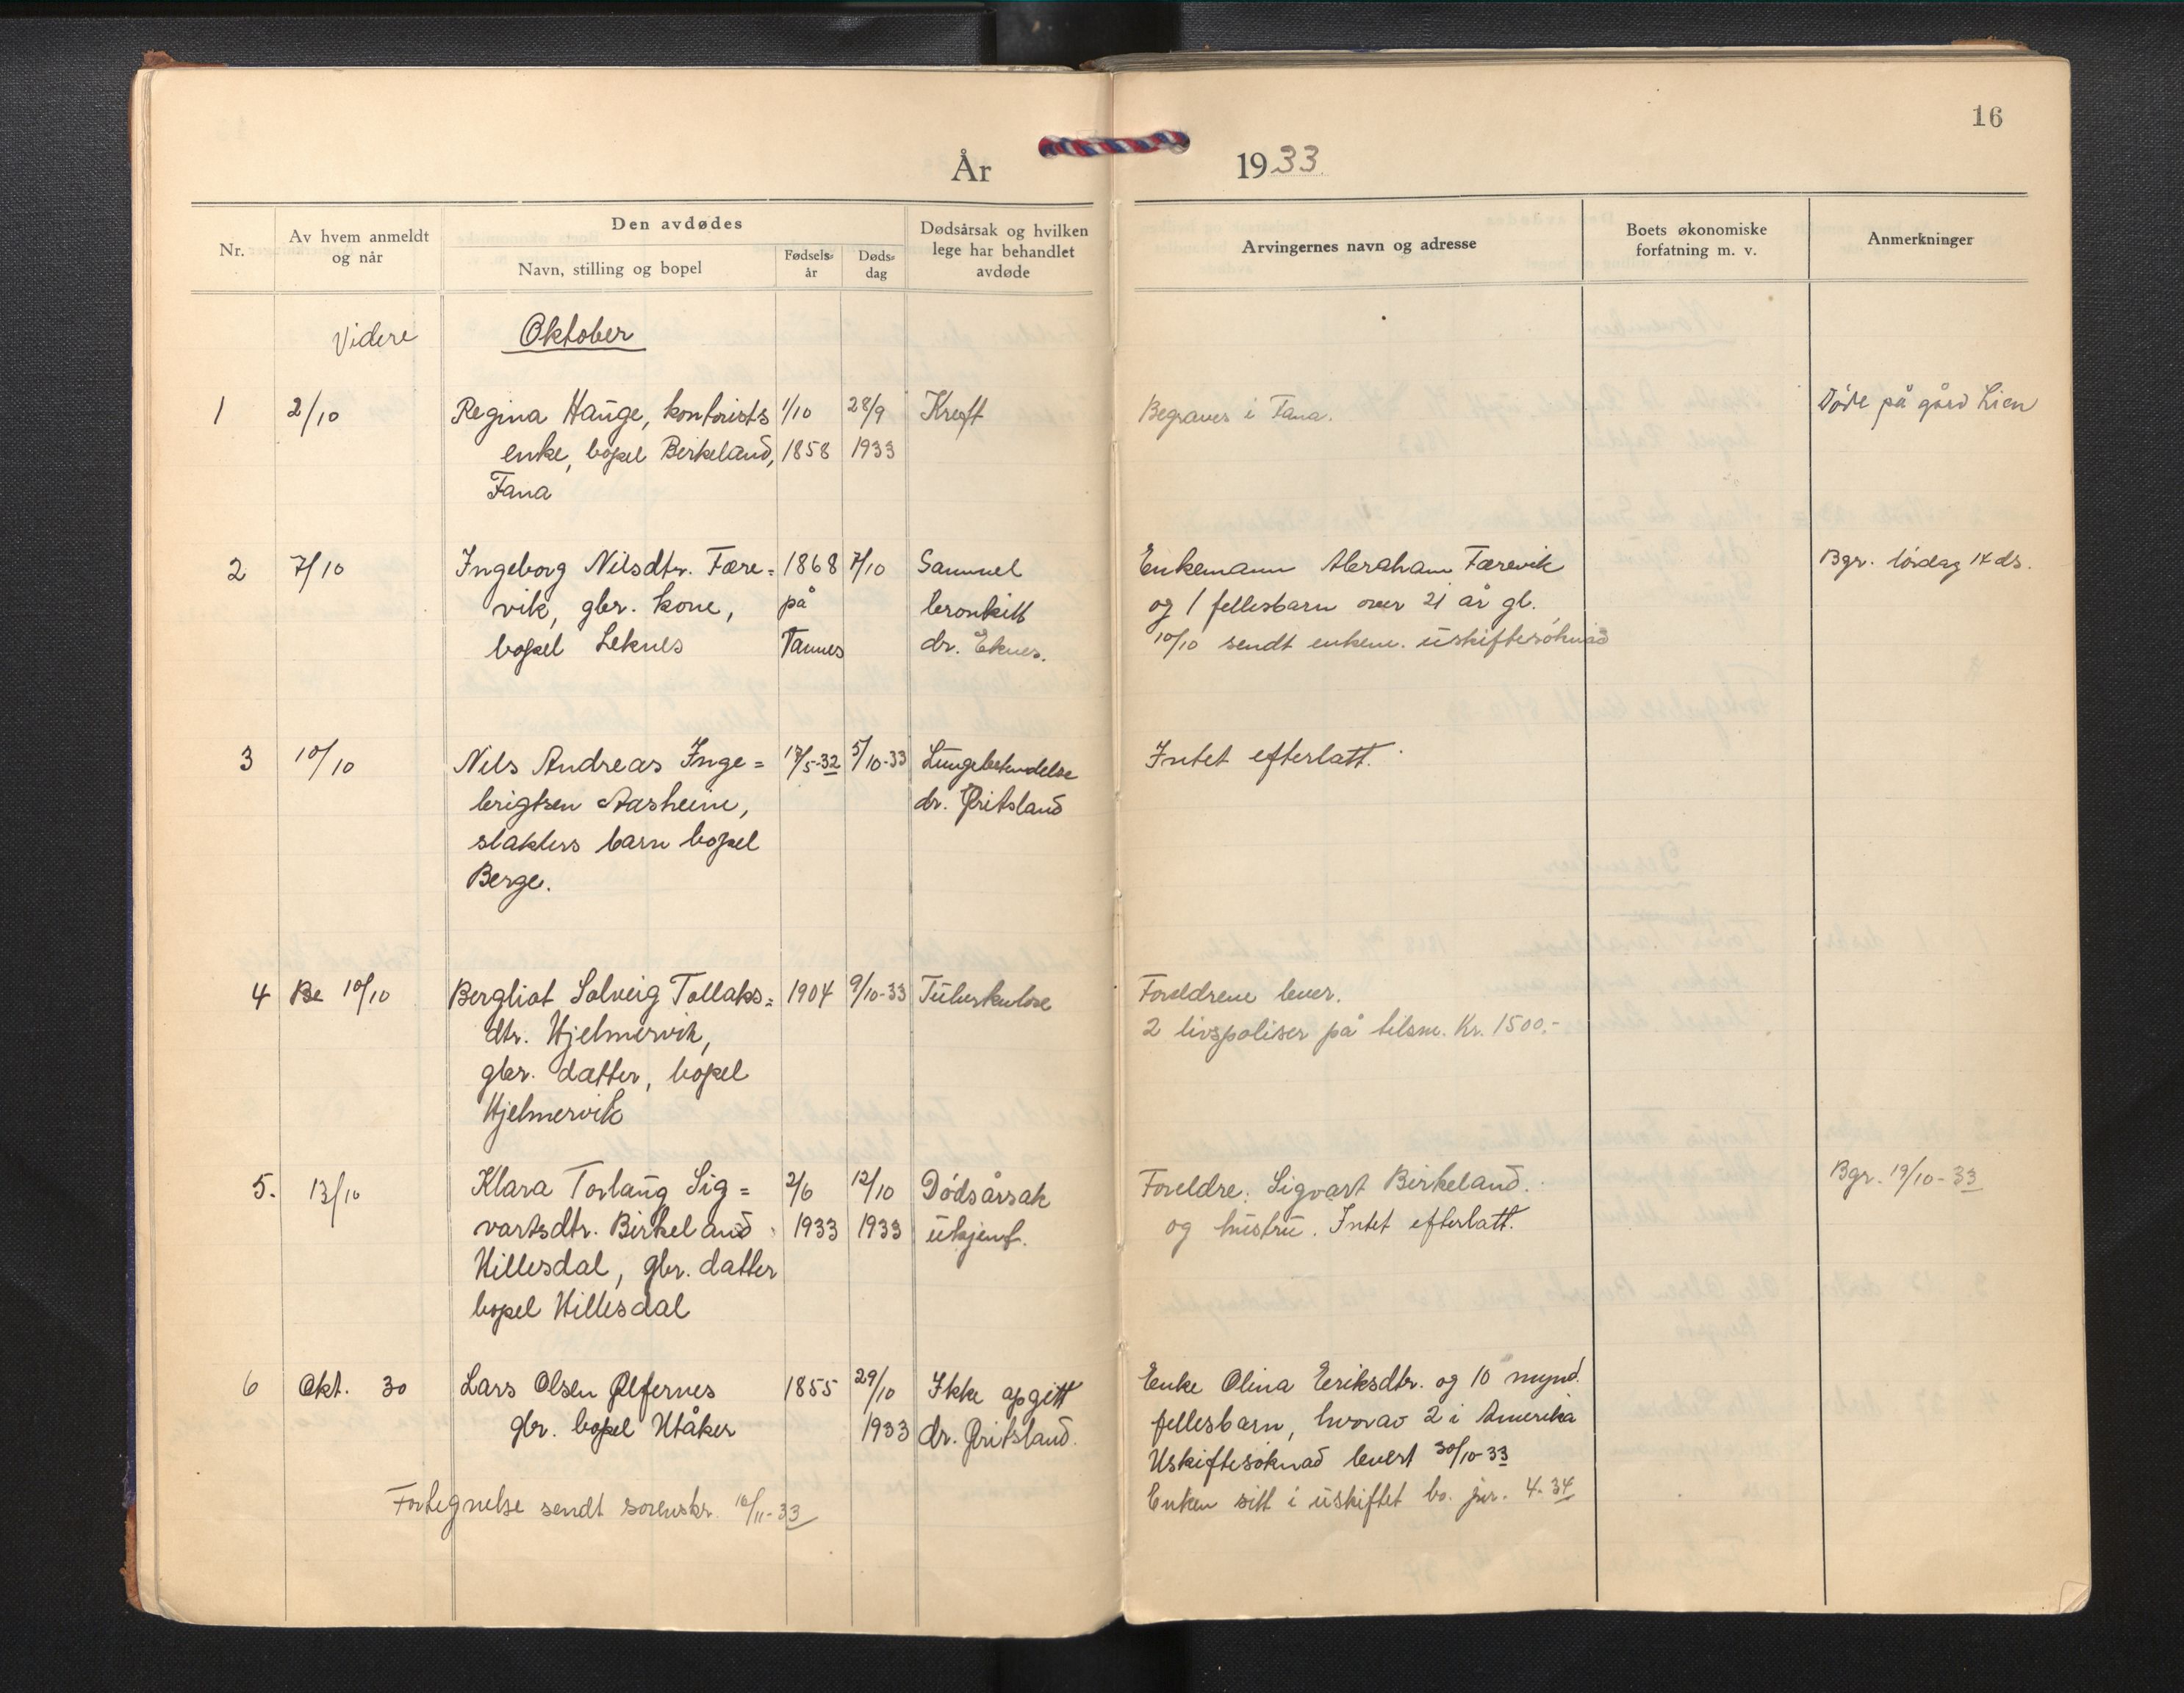 16
År 1933.
Nr.
Av hvem anmeldt
og når
Den avdødes
Navn, stilling og bopel
Fødsels-
år
Døds-
dag
Dødsårsak og hvilken
lege har behandlet
avdøde
Arvingernes navn og adresse
Boets økonomiske
forfatning m. v.
Anmerkninger
Videre Oktober
1 2/10 Regina Hauge, kontorists 1/10 28/9 Kreft Begraves i Fana. Døde på gård Lien
enke, bopel Birkeland, 1858 1933
Fana
2 7/10 Ingeborg Nilsdtr. Fære= 1868 7/10 Enkemann Abraham Færevik Bgr. lørdag 14 ds.
vik, gbr. kone, på bronkitt og 1 fellesbarn over 21 år gl.
bopel Leknes Tannes dr. Eknes. 10/10 sendt enkem. uskiftesøknad
3 10/10 Nils Andreas Inge= 17/5-32 5/10-33 Lungebetendelse Intet efterlatt.
brigtsen Aasheim, dr. Øritsland
slakters barn bopel
Berge.
4 Be 10/10 Bergliot Solveig Tollaks= 1904 9/10-33 Tuberkulose Foreldrene lever.
dtr. Hjelmervik, 2 livspoliser på tilsm. Kr. 1500.-
gbr. datter, bopel
Hjelmervik
5. 13/10 Klara Torlaug Sig= 2/6 12/10 Dødsårsak Foreldre: Sigvart Birkeland. Bgr. 19/10-33
vartsdtr. Birkeland 1933 1933 ukjent. og hustru. Intet efterlatt.
Hillesdal, gbr. datter
bopel Hillesdal
6 Okt. 30 Lars Olsen Ølfernes 1855 29/10 Ikke opgitt Enke Olina Eriksdtr. og 10 mynd.
gbr. bopel Utåker 1933 dr. Øritsland. fellesbarn, hvorav 2 i Amerika
Uskiftesøknad levert 30/10-33
Fortegnelse sendt sorenskr. 10/11-33 Enken sitt i uskiftet bo. jnr. 4-34